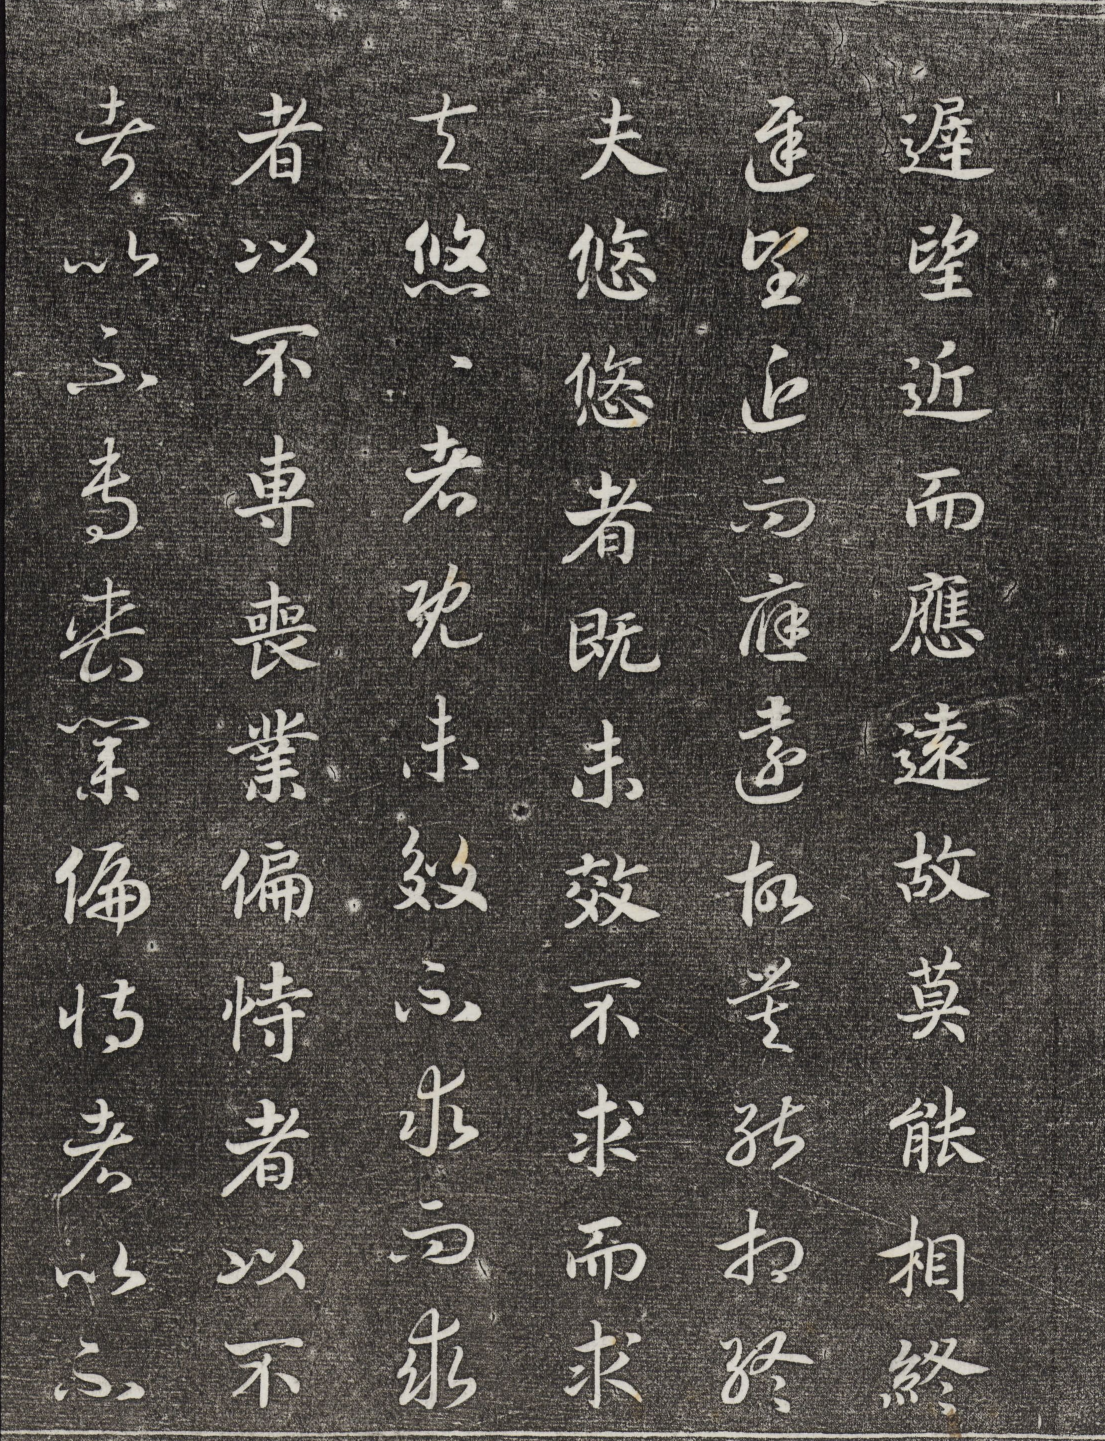 遲望近而應遠故莫能相終
遲望近而應遠故莫能相終
夫悠悠者既未效不求而求
夫悠丶者既未效不求而求
者以不專喪業偏恃者以不
者以不專喪業偏恃者以不